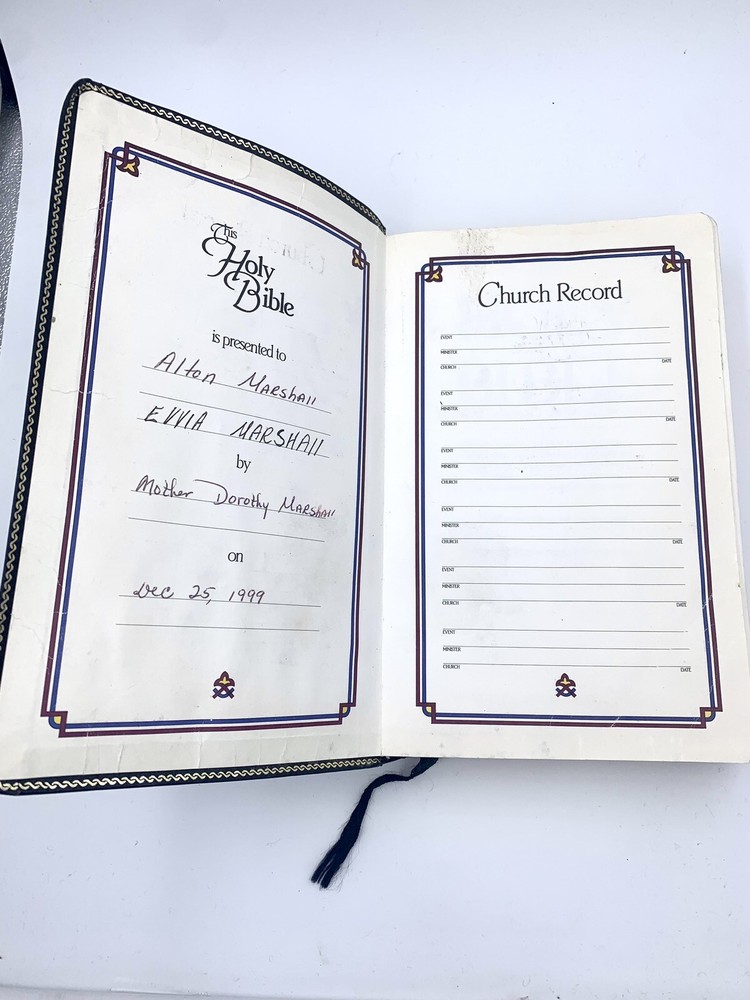 This
Holy
Bible
is presented to
Alton Marshall
EVVIA MARSHAll
by
Mother Dorothy Marshall
on
Dec 25, 1999
Church Record
EVENT
MINISTER
CHURCH DATE
EVENT
MINISTER
CHURCH DATE
EVENT
MINISTER
CHURCH DATE
EVENT
MINISTER
CHURCH DATE
EVENT
MINISTER
CHURCH DATE
EVENT
MINISTER
CHURCH DATE